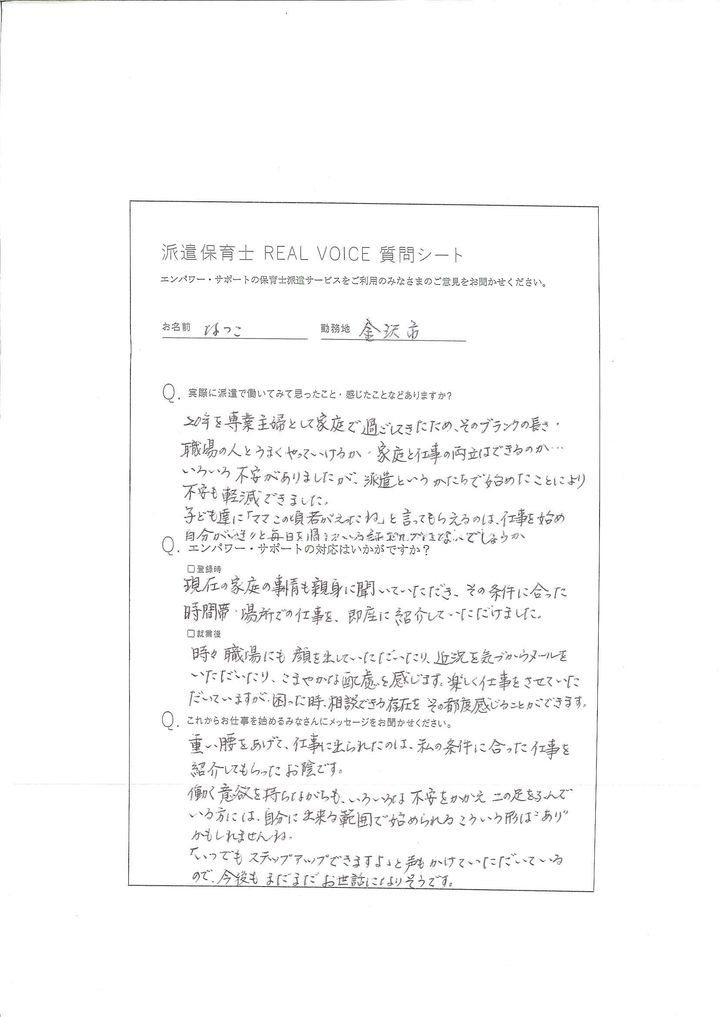 派遣保育士 REAL VOICE 質問シート
エンパワー・サポートの保育士派遣サービスをご利用のみなさまのご意見をお聞かせください。
お名前 はつこ 勤務地 金沢市
Q. 実際に派遣で働いてみて思ったこと・感じたことなどありますか?
20年を専業主婦として家庭で過ごしてきたため、そのブランクの長さ・
職場の人とうまくやっていけるか・家庭と仕事の両立はできるのか…
いろいろ不安がありましたが、派遣というかたちで始めたことにより
不安も軽減できました。
子ども達に「ママこの頃若がえったね」と言ってもらえるのは、仕事を始め
自分が活々と毎日を過ごしている証ではないでしょうか
Q. エンパワー・サポートの対応はいかがですか?
□登録時
現在の家庭の事情も親身に聞いていただき、その条件に合った
時間帯・場所での仕事を、即座に紹介していただけました。
□就業後
時々職場にも顔を出していただいたり、近況を気づかうメールを
いただいたり、こまやかな配慮を感じます。楽しく仕事をさせていた
だいていますが、困った時、相談できる存在をその都度感じることができます。
Q. これからお仕事を始めるみなさんにメッセージをお聞かせください。
重い腰をあげて、仕事に出られたのは、私の条件に合った仕事を
紹介してもらったお陰です。
働く意欲を持ちながらも、いろいろな不安をかかえ二の足をふんで
いる方には、自分に出来る範囲で始められるこういう形は"あり"
かもしれませんね。
「いつでもステップアップできますよ」と声もかけていただいている
ので、今後もまだまだお世話になりそうです。